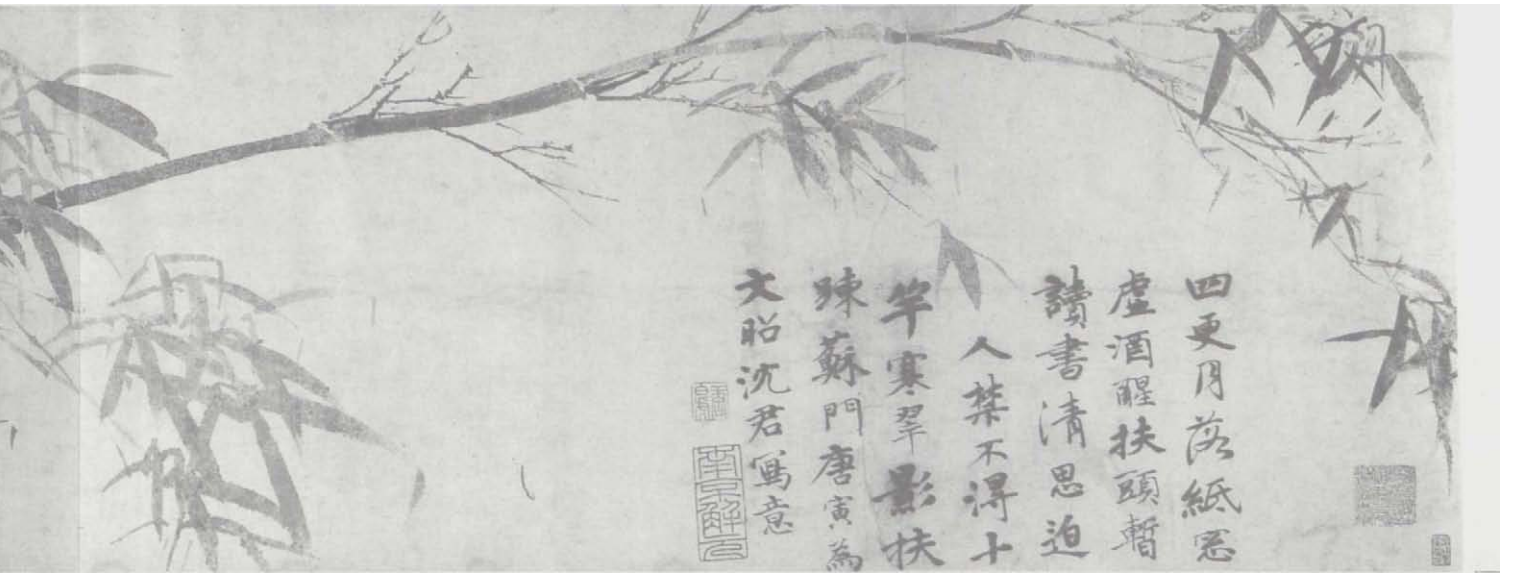 四更月落紙窓
虛酒醒扶頭暫
讀書清思迫
人禁不淂十
竿寒翠影扶
疎蘇門唐寅為
文昭沈君寫意
南京解元